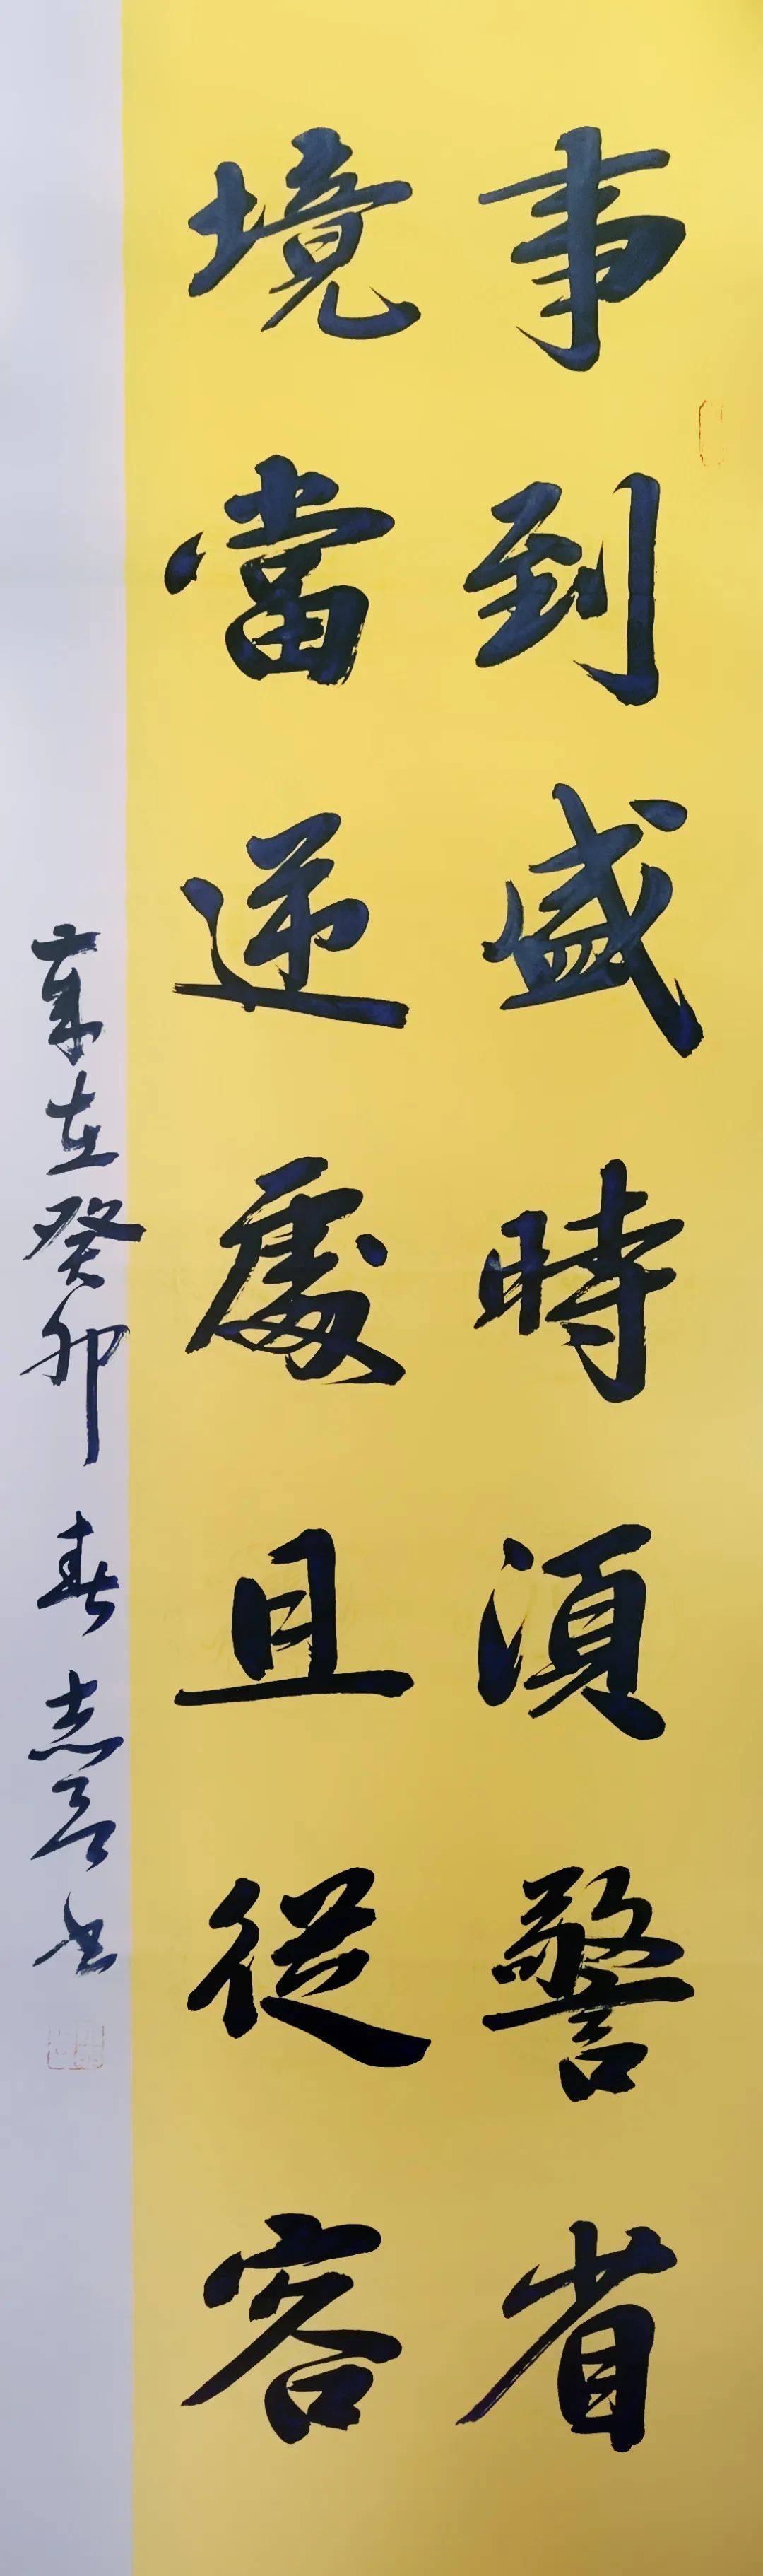 事到盛時須警省
境當逆處且從容
歲在癸卯 春 志 书